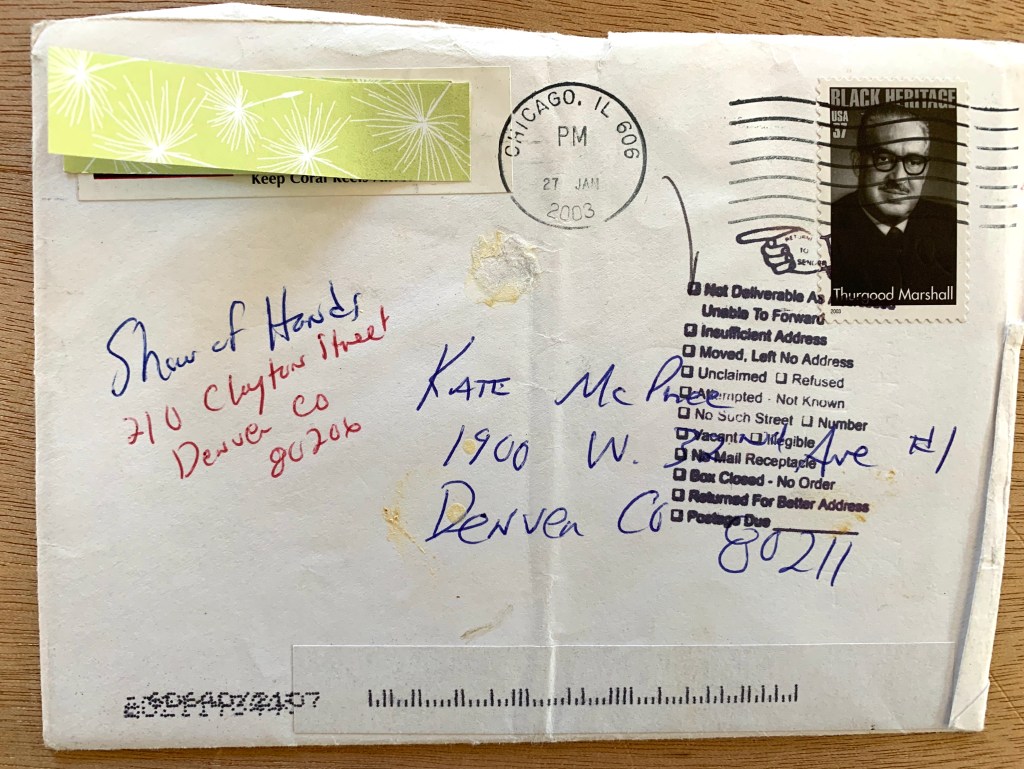 Keep Coral Reefs
CHICAGO, IL 606
PM
27 JAN
2003
BLACK HERITAGE
USA
37
Thurgood Marshall
2003
RETURN
TO
SENDER
Not Deliverable As
Unable To Forward
Insufficient Address
Moved, Left No Address
Unclaimed Refused
Attempted - Not Known
No Such Street Number
Vacant Illegible
No Mail Receptacle
Box Closed - No Order
Returned For Better Address
Postage Due
Show of Hands
210 Clayton Street
Denver CO
80206
Kate McPhee
1900 W. 32nd Ave #1
Denver Co
80211